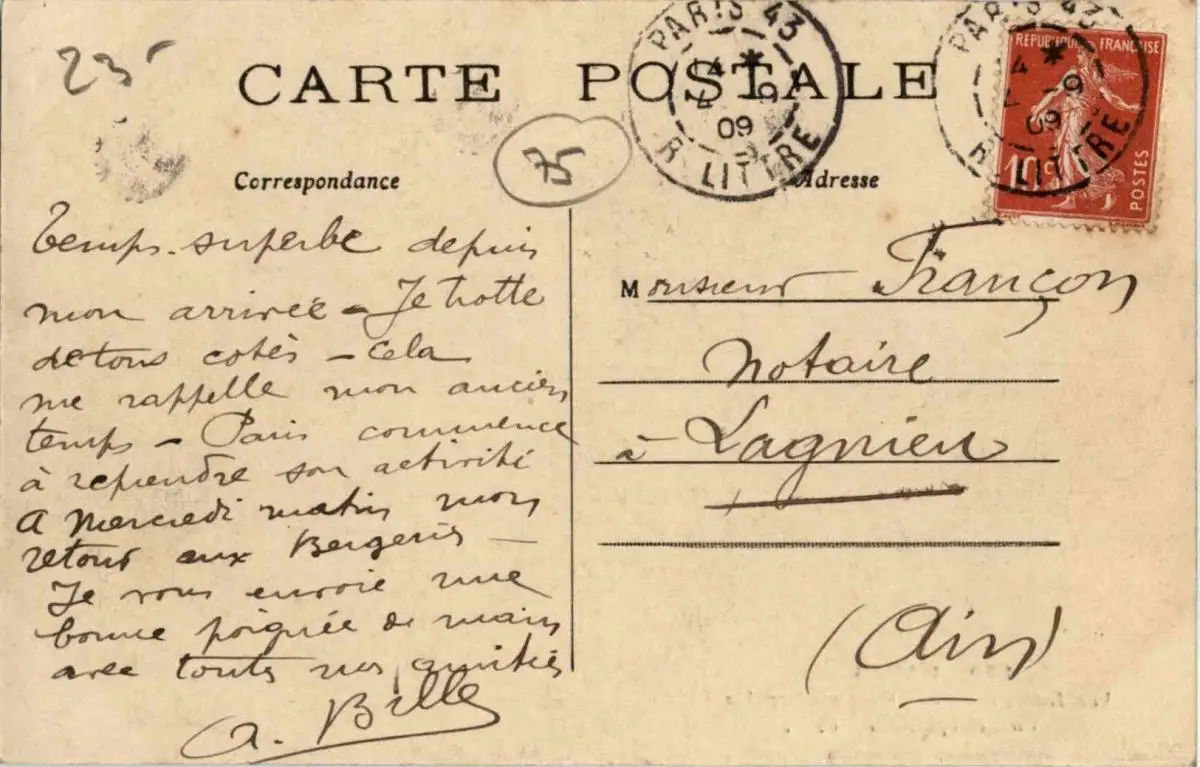 23
CARTE POSTALE
PARIS 43
4 * 9
09
R. LITTRE
PARIS 43
4 * 9
09
R. LITTRE
REPUBLIQUE FRANÇAISE
10
POSTES
Correspondance
75
Adresse
Temps superbe depuis
mon arrivée - Je trotte
de tous cotés - Cela
me rappelle mon ancien
temps - Paris commence
à reprendre son activité
A Mercredi matin mon
retour aux Bergeries -
Je vous envoie une
bonne poignée de main
avec toutes nos amitiés
A. Bille
Monsieur Françon
Notaire
à Lagnieu
(Ain)